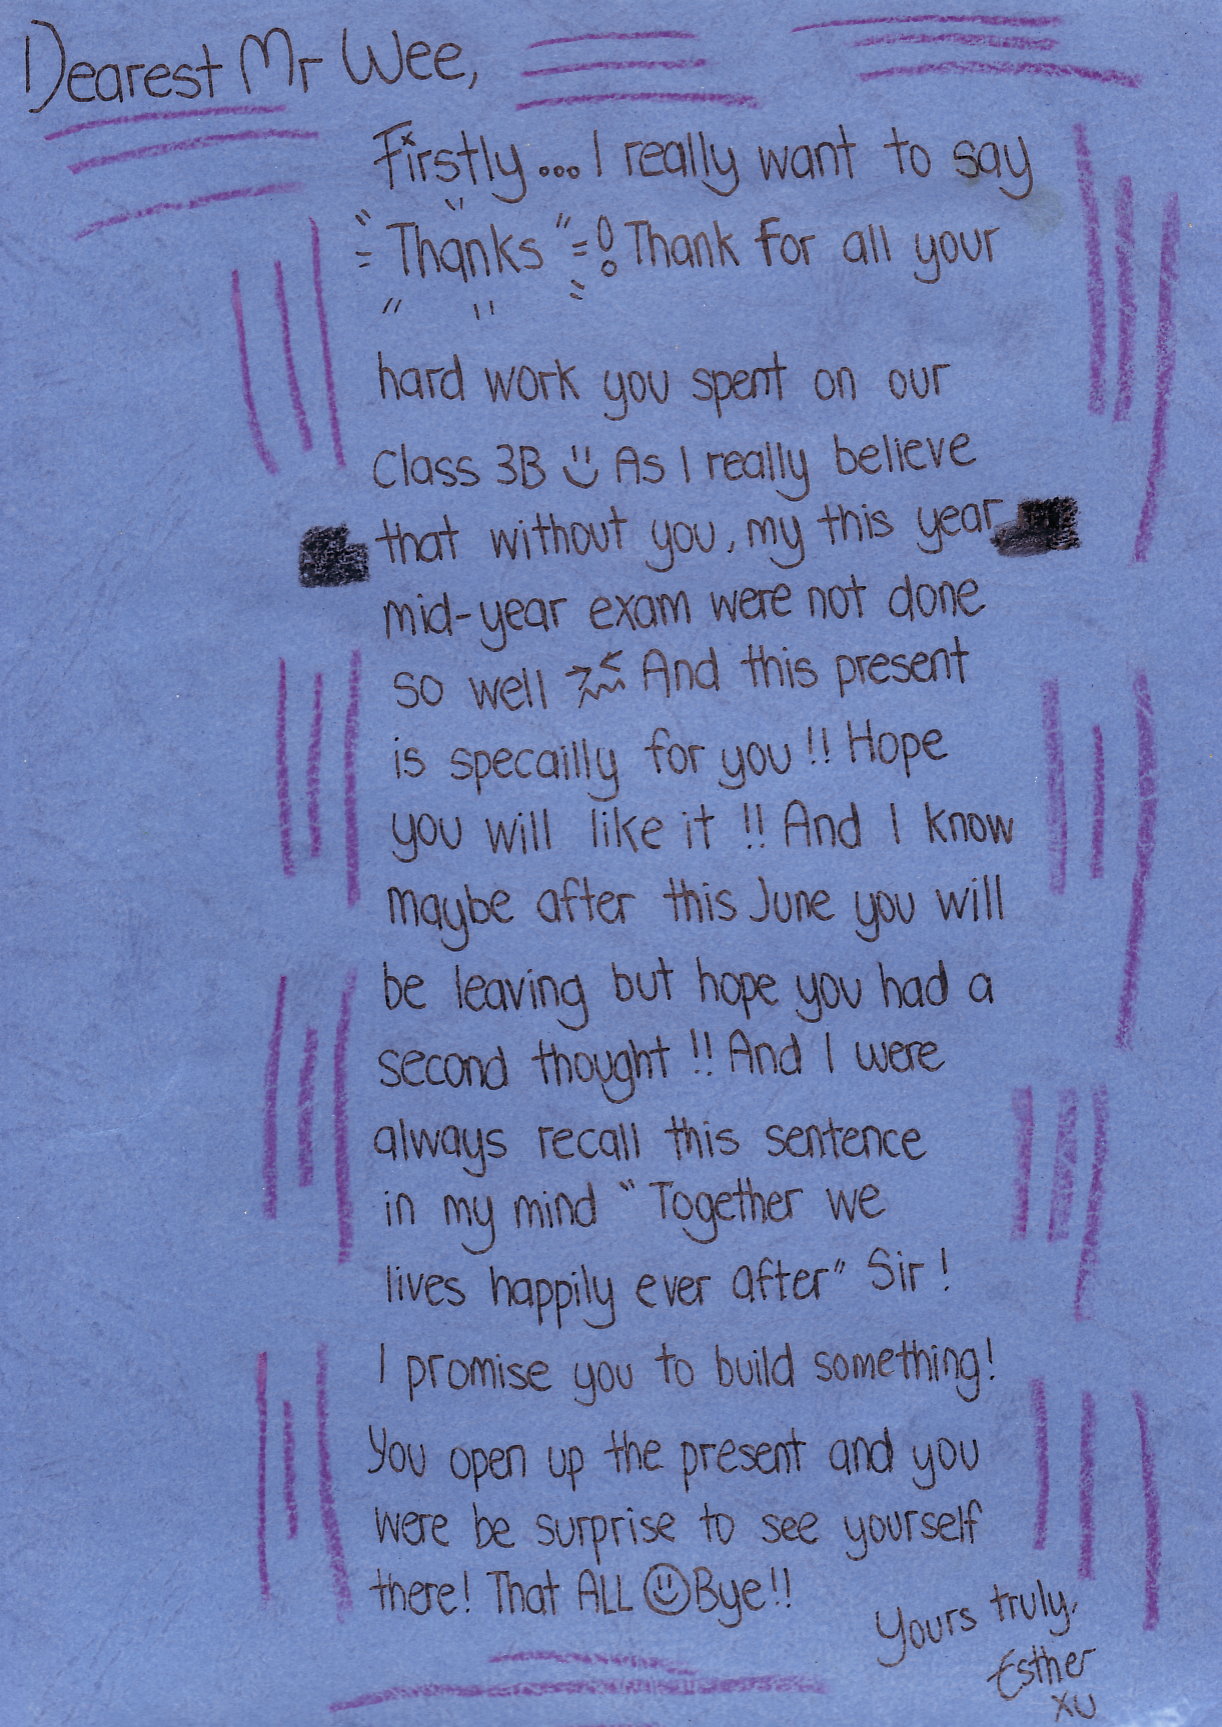 Dearest Mr Wee,
Firstly... I really want to say
"Thanks"! Thank for all your
hard work you spent on our
Class 3B As I really believe
that without you, my this year
mid-year exam were not done
so well And this present
is specailly for you!! Hope
you will like it!! And I know
maybe after this June you will
be leaving but hope you had a
second thought!! And I were
always recall this sentence
in my mind "Together we
lives happily ever after" Sir!
I promise you to build something!
You open up the present and you
were be surprise to see yourself
there! That ALL Bye!!
Yours truly,
Esther
XU